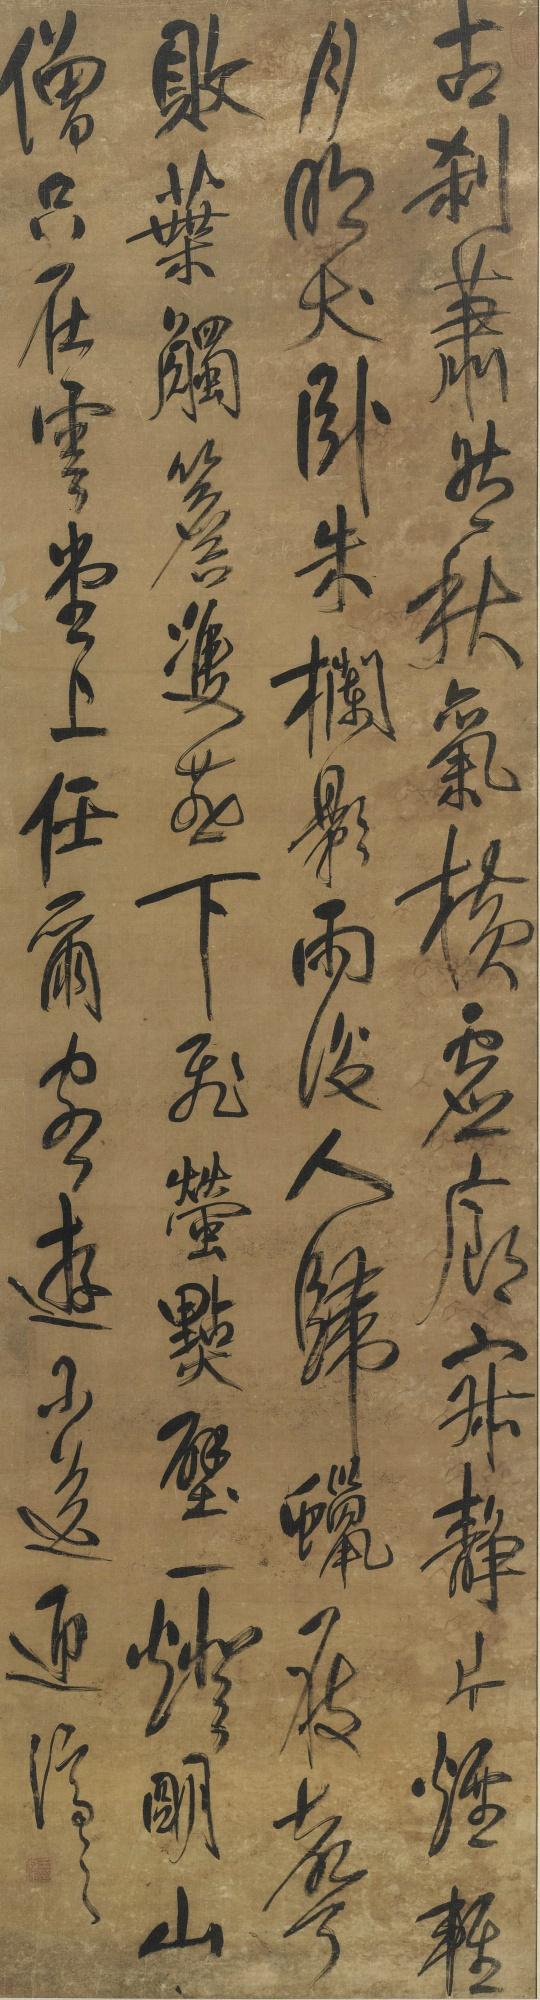 古剎蕭然秋氣橫虛廊寂靜片煙輕
月明犬臥朱欄影雨後人歸蠟屐聲
敗葉觸簷雙燕下飛螢點壁一燈明山
僧只在雲堂上任爾客遊不送迎